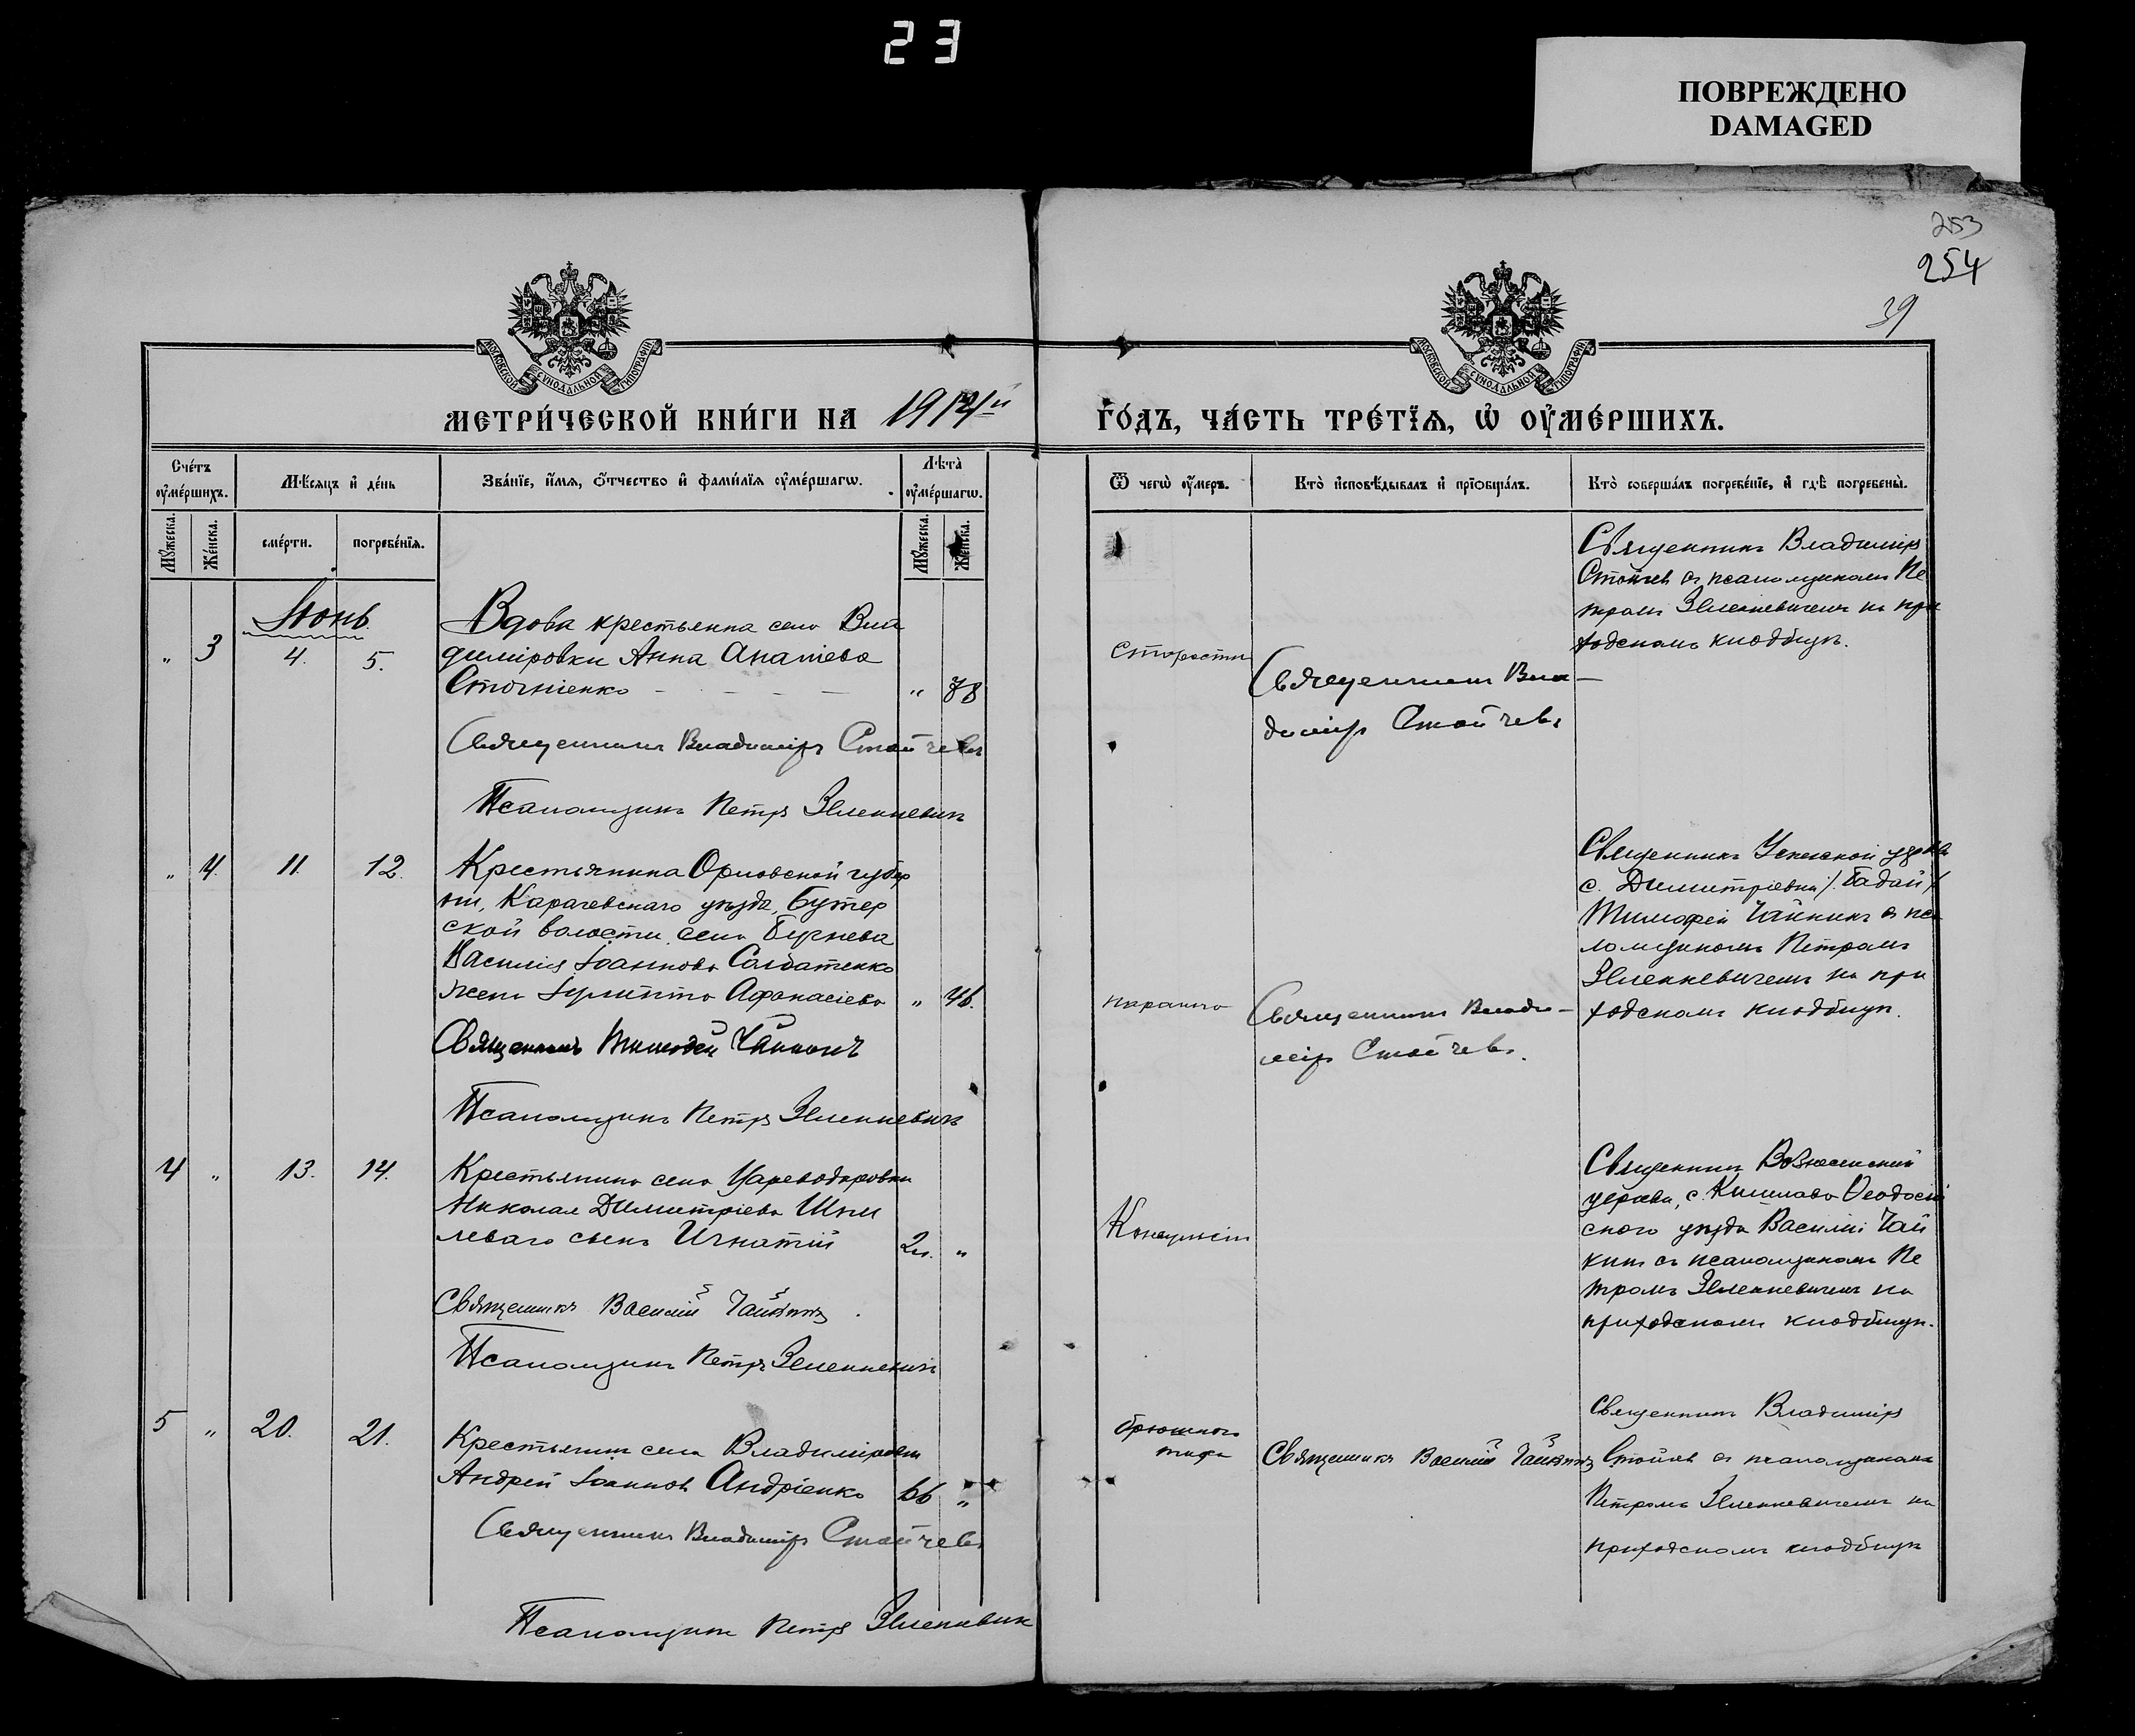 23
ПОВРЕЖДЕНО
DAMAGED
253
254
39
МОСКОВСКОЙ СѴНОДАЛЬНОЙ ТИПОГРАФІИ
МОСКОВСКОЙ СѴНОДАЛЬНОЙ ТИПОГРАФІИ
МЕТРИ́ЧЕСКОЙ КНИ́ГИ НА 1914й
ГО́ДЪ, ЧА́СТЬ ТРЕ́ТЇѦ, Ѡ҆ ОУ҆МЕ́РШИХЪ.
Сче́тъ оу҆ме́ршихъ.
Мѣ́сяцъ и҆ де́нь
Зва́нїе, и҆́мѧ, ѻ҆́тчество и҆ фами́лїѧ оу҆ме́ршагѡ.
Лѣта̀ оу҆ме́ршагѡ.
Ѿ чегѡ̀ оу҆́меръ.
Кто̀ и҆сповѣ́дывалъ и҆ прїѻбща́лъ.
Кто̀ соверша́лъ погребе́нїе, и҆ гдѣ̀ погребены̀.
Мꙋ́жеска.
Же́нска.
сме́рти.
погребе́нїѧ.
Мꙋ́жеска.
Же́нска.
Іюнь
" 3 4. 5.
Вдова крестьянка села Вла
диміровки Анна
" 78
Священникъ Владиміръ Стойчевъ
Псаломщикъ Петръ Зеленкевичъ
Старости
Священникъ Вла-
диміръ Стойчевъ
Священникъ Владиміръ
Стойчевъ съ псаломщикомъ Пе
тромъ Зеленкевичемъ на при
ходскомъ кладбищѣ.
" 4. 11. 12.
Крестьянина Орловской губер
ніи, Карачевскаго уѣзда, Бутер
ской волости, села
Василія Іоаннова Солдатенко
жена Афанасіева " 46.
Священникъ Тимофей Чайкинъ
Псаломщикъ Петръ Зеленкевичъ
Священникъ Влади-
міръ Стойчевъ.
Священникъ Успенской церкви
с. Димитріевки
Тимофей Чайкинъ съ пса
ломщикомъ Петромъ
Зеленкевичемъ на при
ходскомъ кладбищѣ.
4 " 13. 14.
Крестьянина села Цареводаровки
Николая Димитріева
сынъ Игнатій "
Священникъ Василій Чайкинъ
Псаломщикъ Петръ Зеленкевичъ
Священникъ Вознесенской
церкви, с. Ѳеодосій
скаго уѣзда Василій Чай
кинъ съ псаломщикомъ Пе
тромъ Зеленкевичемъ на
приходскомъ кладбищѣ.
5 " 20. 21.
Крестьянинъ села Владиміровки
Андрей Іоанновъ Андріенко 66 "
Священникъ Владиміръ Стойчевъ
Псаломщикъ Петръ Зеленкевичъ
брюшного
тифа
Священникъ Василій Чайкинъ
Священникъ Владиміръ
Стойчевъ съ псаломщикомъ
Петромъ Зеленкевичемъ на
приходскомъ кладбищѣ